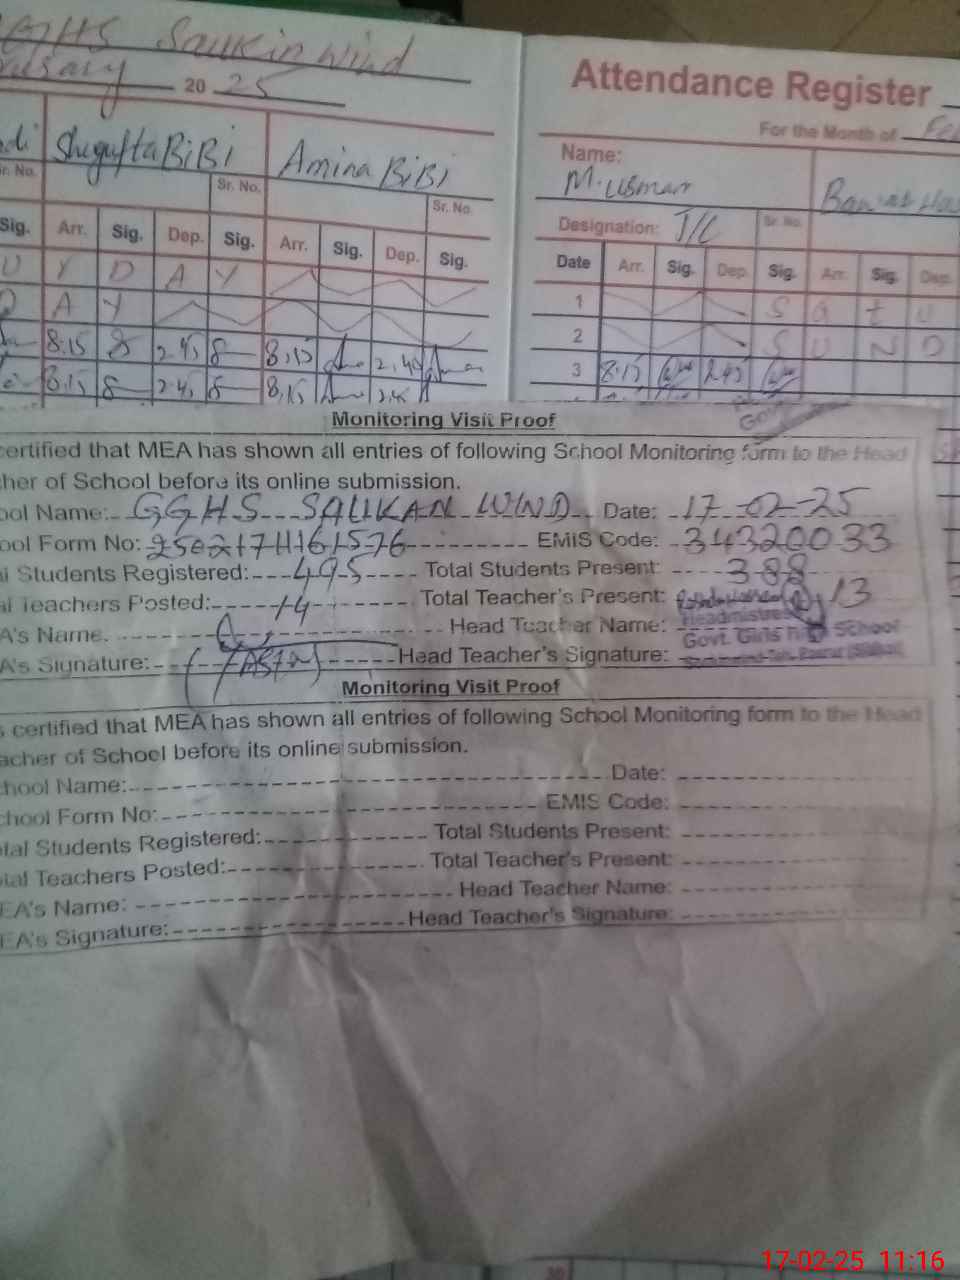 GHS Saukin Wind
20 25
Shgufta BiBi Amina BiBi
Sr. No. Sr. No.
Sr. No.
Sig. Arr. Sig. Dep. Sig. Arr. Sig. Dep. Sig.
U Y D A Y
A Y
8.15 8 2.45 8 8.15 2.40
8.15 8 2.45 8 8.15 2.45
Attendance Register
For the Month of Fe
Name:
M. usman
Designation: J/C Sr. No.
Date Arr. Sig. Dep. Sig. Arr. Sig. Dep.
1 S a t u
2 S U N D
3 8.15 2.45
Monitoring Visit Proof
certified that MEA has shown all entries of following School Monitoring form to the Head
her of School before its online submission.
ool Name: GGHS SAUKAN WIND Date: 17-02-25
ool Form No: EMIS Code: 34320033
al Students Registered: 495 Total Students Present: 388
al Teachers Posted: 14 Total Teacher's Present: 13
A's Name. Head Teacher Name: Headmistress
Govt. Girls High School
A's Signature: Head Teacher's Signature:
Monitoring Visit Proof
s certified that MEA has shown all entries of following School Monitoring form to the Head
acher of School before its online submission.
chool Name: Date:
chool Form No: EMIS Code:
otal Students Registered: Total Students Present:
otal Teachers Posted: Total Teacher's Present:
EA's Name: Head Teacher Name:
EA's Signature: Head Teacher's Signature:
17-02-25 11:16